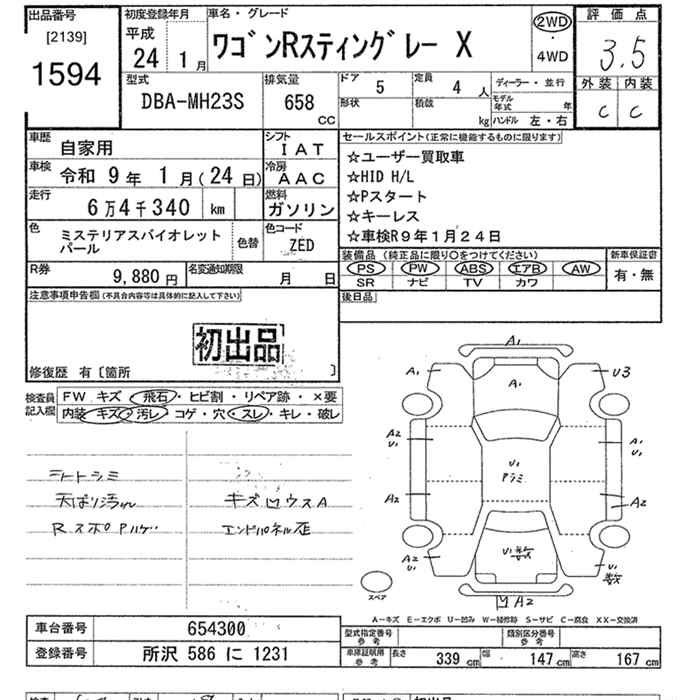 出品番号
[2139]
1594
初度登録年月
平成
24 1月
車名・グレード
ワゴンRスティングレー X
2WD
・
4WD
評価点
3.5
外装 内装
C C
型式
DBA-MH23S
排気量
658
CC
ドア 5
形状
定員 4 人
積載 kg
ディーラー・並行
モデル年式 年
ハンドル 左・右
車歴 自家用
車検 令和 9年 1月(24日)
走行 6万4千340 km
シフト
IAT
冷房
AAC
燃料
ガソリン
色 ミステリアスバイオレット
パール
色替
色コード
ZED
R券 9,880 円
名変通知期限 月 日
セールスポイント(正常に機能するものに限ります)
☆ユーザー買取車
☆HID H/L
☆Pスタート
☆キーレス
☆車検R9年1月24日
装備品 (純正品に限り○をつけてください)
PS PW ABS エアB AW
SR ナビ TV カワ
新車保証書
有・無
後日品
注意事項申告欄(不具合内容等は具体的に記入して下さい)
初出品
修復歴 有〔箇所 〕
検査員
記入欄
FW キズ 飛石・ヒビ割・リペア跡・×要
内装 キズ・汚レ・コゲ・穴・スレ・キレ・破レ
シートシミ
天ばり汚れ
キズ凹ウスA
Rスポ Pハゲ
エンドパネル歪
A1
A1 A1 U3
A2 U1
A1 U1
U1
Pラミ
A2 A2
A2 U1
U1
U1
A2
スペア
A-キズ E-エクボ U-凹み W-補修跡 S-サビ C-腐食 XX-交換済
車台番号 654300
登録番号 所沢 586 に 1231
型式指定番号
参考
類別区分番号
参考
車庫証明用
参考
長さ 339 cm 幅 147 cm 高さ 167 cm